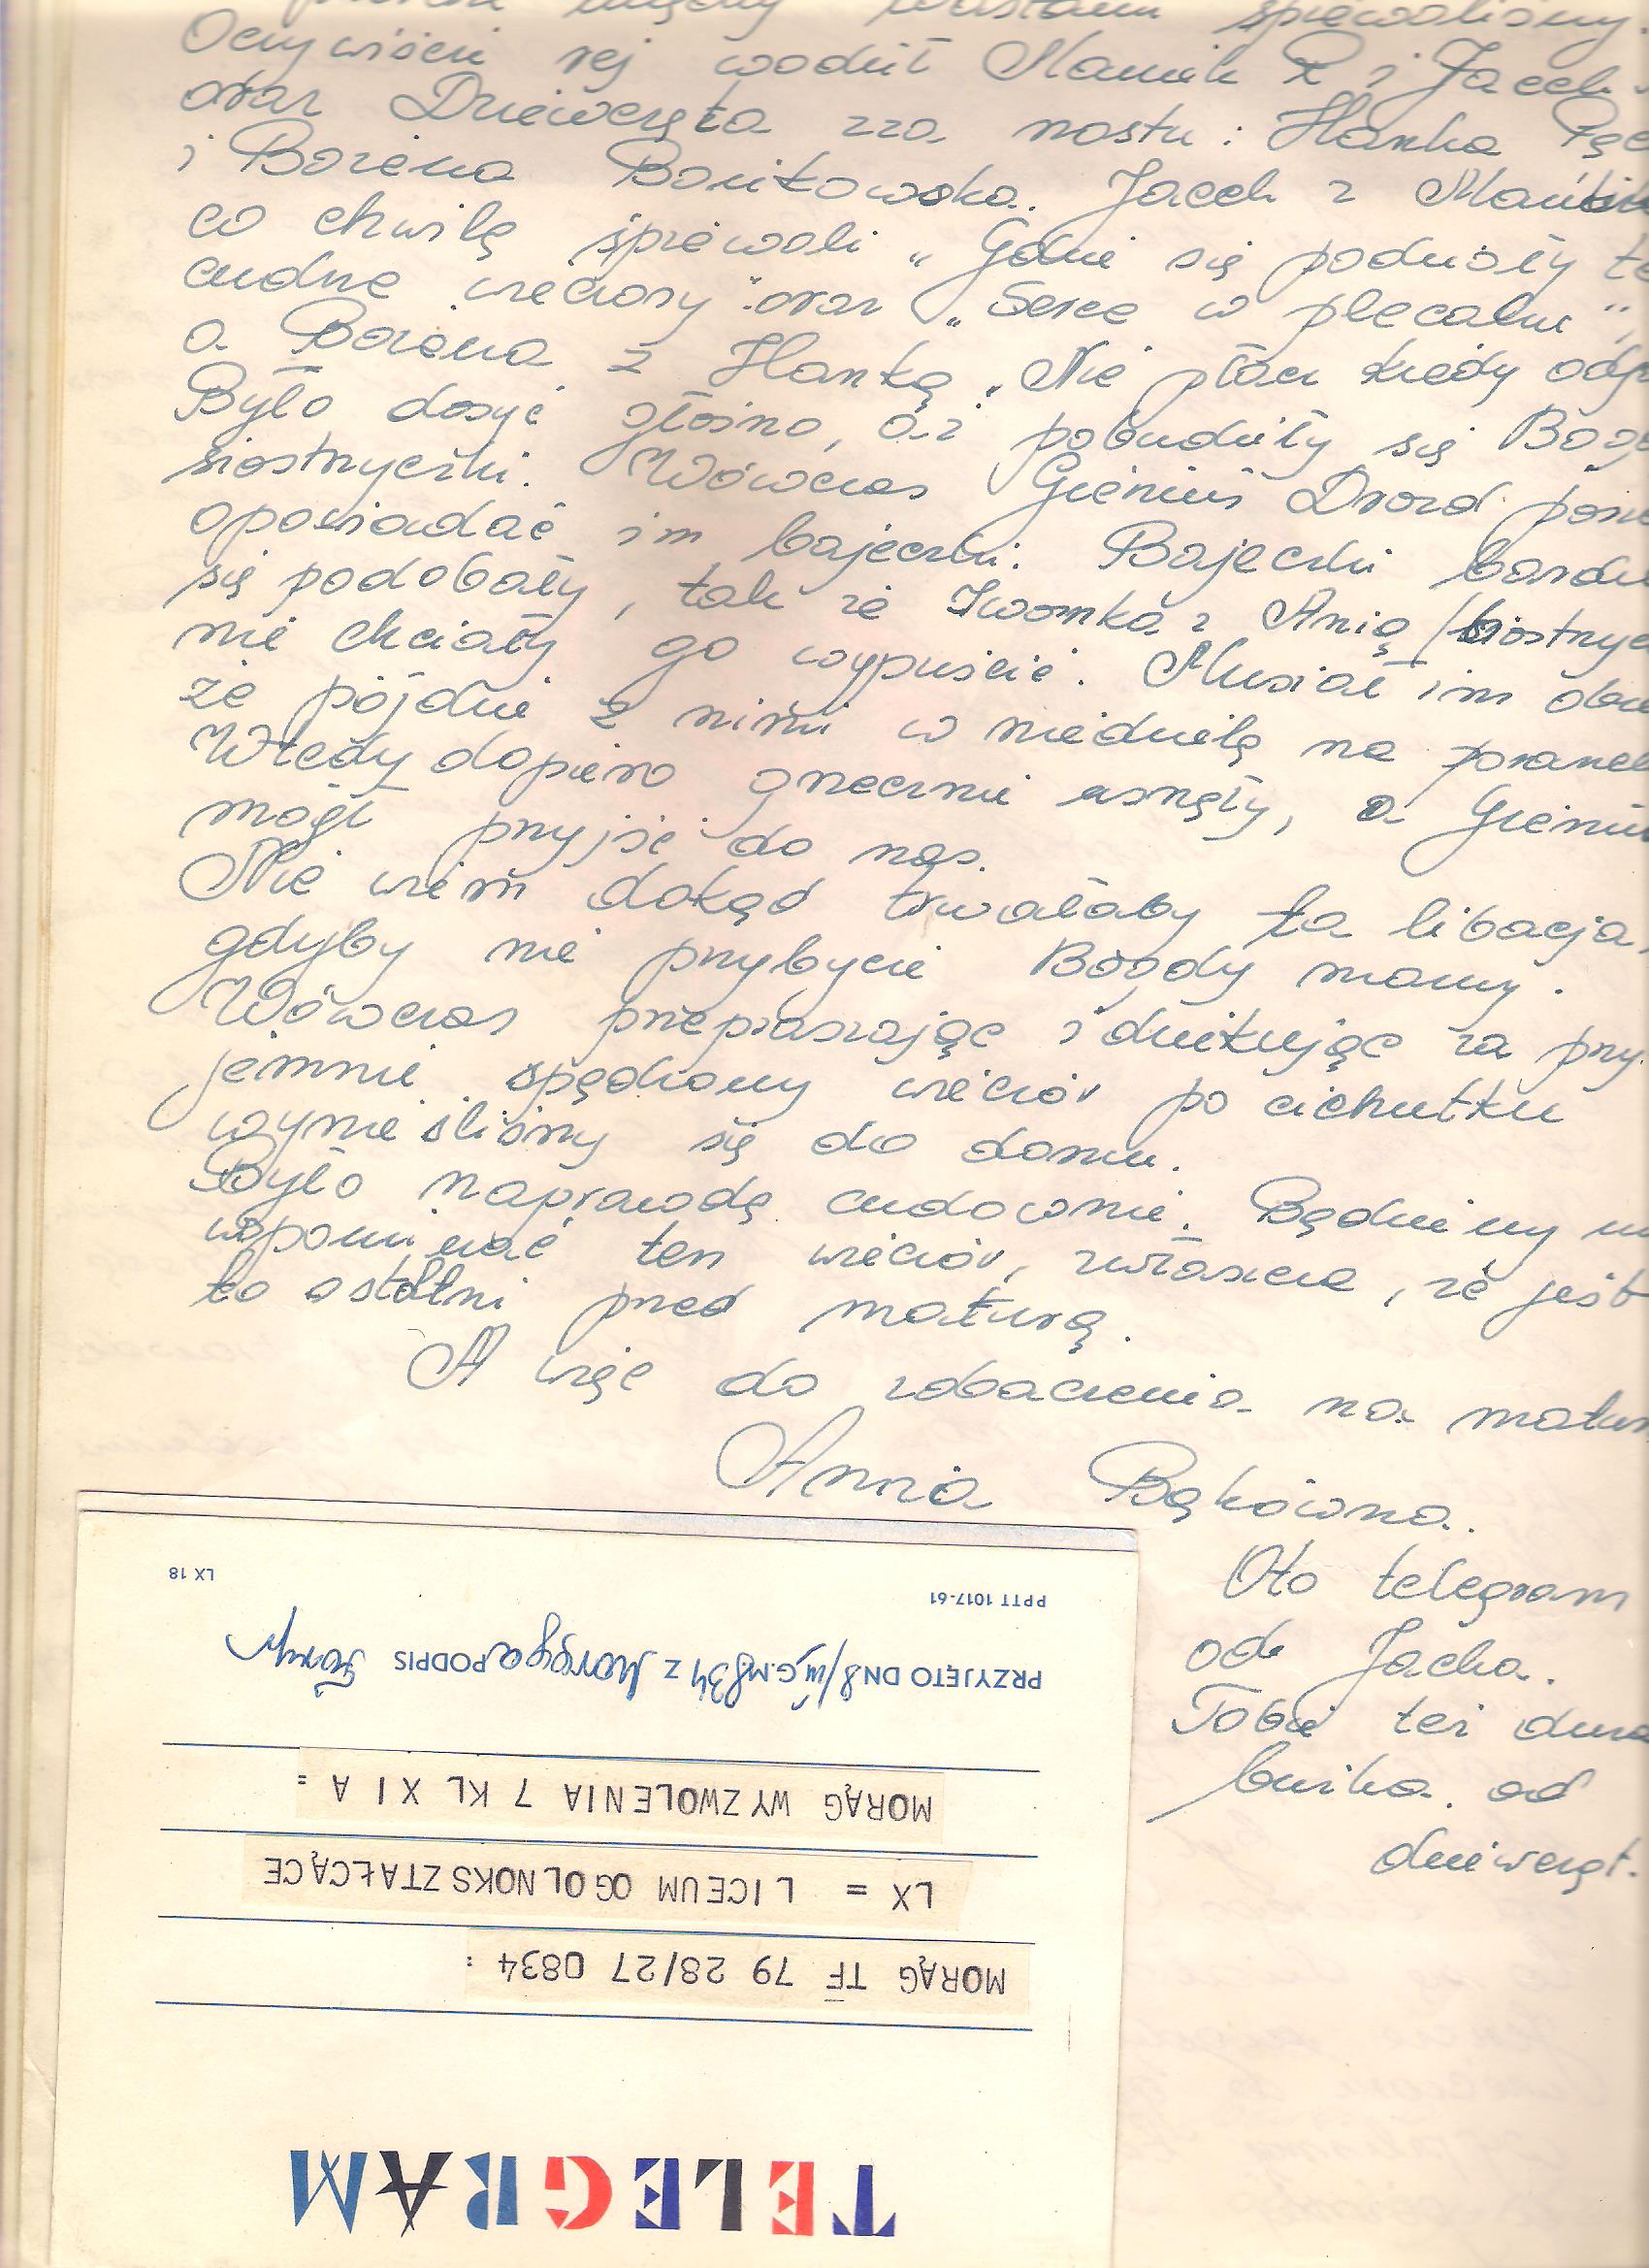 śpiewaliśmy.
Oczywiście rej wodził Maniek R i Jacek
oraz Dziewczęta zza mostu: Hanka
i Bożena Bonikowska. Jacek z
co chwilę śpiewali „Gdzie się podziały te
cudne wieczory" oraz „Serce w plecaku",
a Bożena z Hanką „Nie płacz kiedy
Było dosyć głośno, aż pobudziły się
siostryczki. Wówczas Gieniuś Drozd
opowiadać im bajeczki. Bajeczki
się podobały, tak że Iwonka z Anią /
nie chciały go wypuścić. Musiał im
że pójdzie z nimi w niedzielę na
Wtedy dopiero grzecznie usnęły, a
mógł przyjść do nas.
Nie wiem dokąd trwałaby ta libacja,
gdyby nie przybycie Bogdy mamy.
Wówczas przepraszając i dziękując za przy-
jemnie spędzony wieczór po cichutku
wynieśliśmy się do domu.
Było naprawdę cudownie. Będziemy
wspominać ten wieczór, zwłaszcza, że jest
to ostatni przed maturą.
A więc do zobaczenia na
Ania Bąkówna.
Oto telegram
od Jacka.
Tobie też duża
buźka od
dziewcząt.
TELEGRAM
MORĄG TF 79 28/27 0834 :
LX = LICEUM OGOLNOKSZTAŁCĄCE
MORĄG WYZWOLENIA 7 KL XI A =
PRZYJĘTO DN 8/III G.M. 834 Z Morąga PODPIS
PPTT 1017-61 LX 18